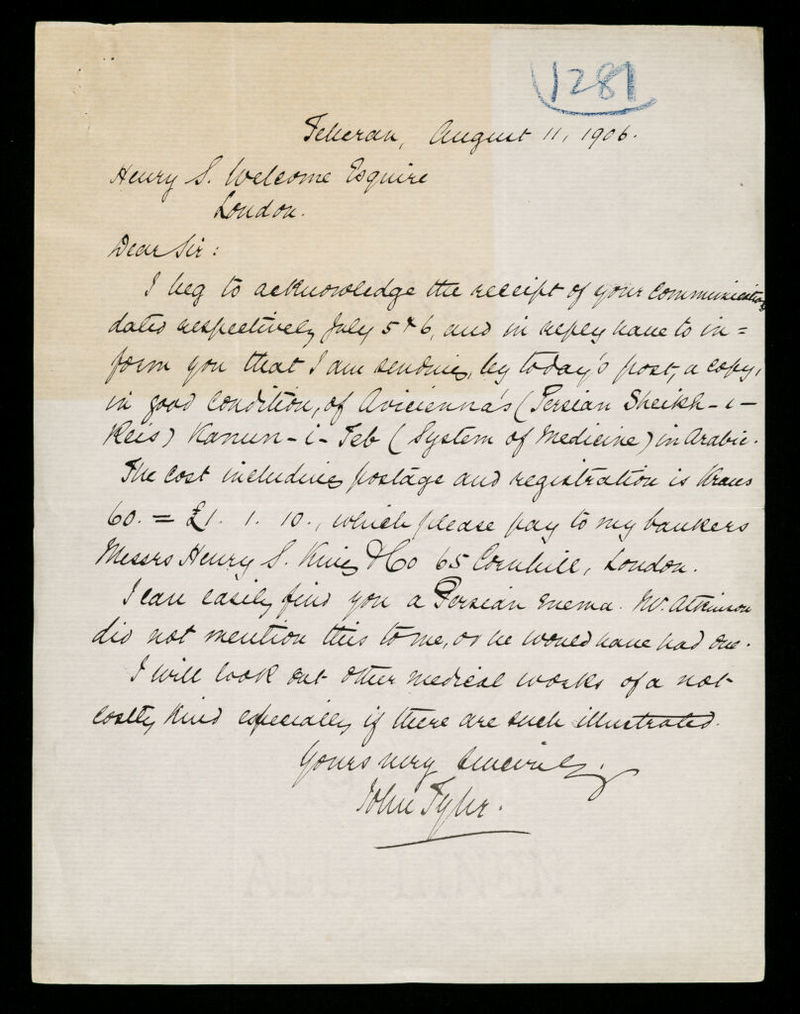 1281
Teheran, August 11, 1906.
Henry S. Welcome Esquire
London.
Dear Sir:
I beg to acknowledge the receipt of your communications
dated respectively July 5 & 6, and in reply have to in=
form you that I am sending, by today's post, a copy,
in good condition, of Avicienna's (Persian Sheikh-i-
Reis) Kanun-i-Teb (System of Medicine) in Arabic.
The cost including postage and registration is Krans
60. = £1. 1. 10., which please pay to my bankers
Messrs Henry S. King & Co 65 Cornhill, London.
I can easily find you a Persian enema. Mr. Atkinson
did not mention this to me, or he would have had one.
I will look out other medical works of a not
costly kind especially if there are such illustrated.
Yours very sincerely,
John Tyler.